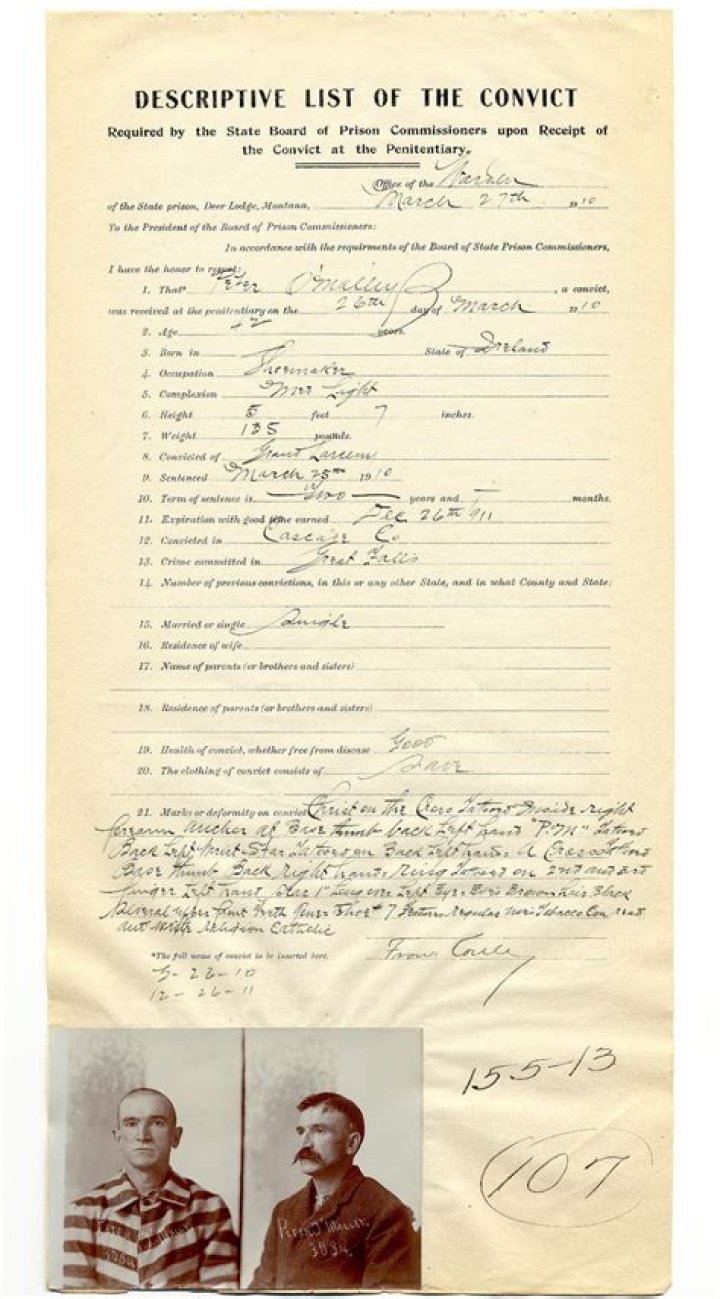 DESCRIPTIVE LIST OF THE CONVICT
Required by the State Board of Prison Commissioners upon Receipt of
the Convict at the Penitentiary.
Office of the Warden
of the State prison, Deer Lodge, Montana, March 27th 1910
To the President of the Board of Prison Commissioners:
In accordance with the requirments of the Board of State Prison Commissioners,
I have the honor to report:
1. That* Peter O'Malley, a convict,
was received at the penitentiary on the 26th day of March 1910
2. Age 42 years.
3. Born in State of Ireland
4. Occupation Shoemaker
5. Complexion Med Light
6. Height 5 feet 7 inches.
7. Weight 135 pounds.
8. Convicted of Grand Larceny
9. Sentenced March 25th 1910
10. Term of sentence is Two years and months.
11. Expiration with good time earned Dec 26th 1911
12. Convicted in Cascade Co
13. Crime committed in Great Falls
14. Number of previous convictions, in this or any other State, and in what County and State:
15. Married or single Single
16. Residence of wife
17. Name of parents (or brothers and sisters)
18. Residence of parents (or brothers and sisters)
19. Health of convict, whether free from disease Good
20. The clothing of convict consists of
21. Marks or deformity on convict Christ on the Cross Tattoo Inside right
forearm Ancher at Base thumb back Left hand "P.M" Tattoo
Back Left Wrist Star Tattoo on Back Left hand A Cross Tattoo
Base thumb Back right hand Ring Tattoo on 2nd and 3rd
finger Left hand Scar 1" Long over Left Eye Eyes Brown Hair Black
Several upper front teeth Shoe # 7 Features Regular Tobacco Can read
and write Religion Catholic
*The full name of convict to be inserted here. Frank Conley
12-26-11
155-13
107
3084
Peter O'Malley
3084.